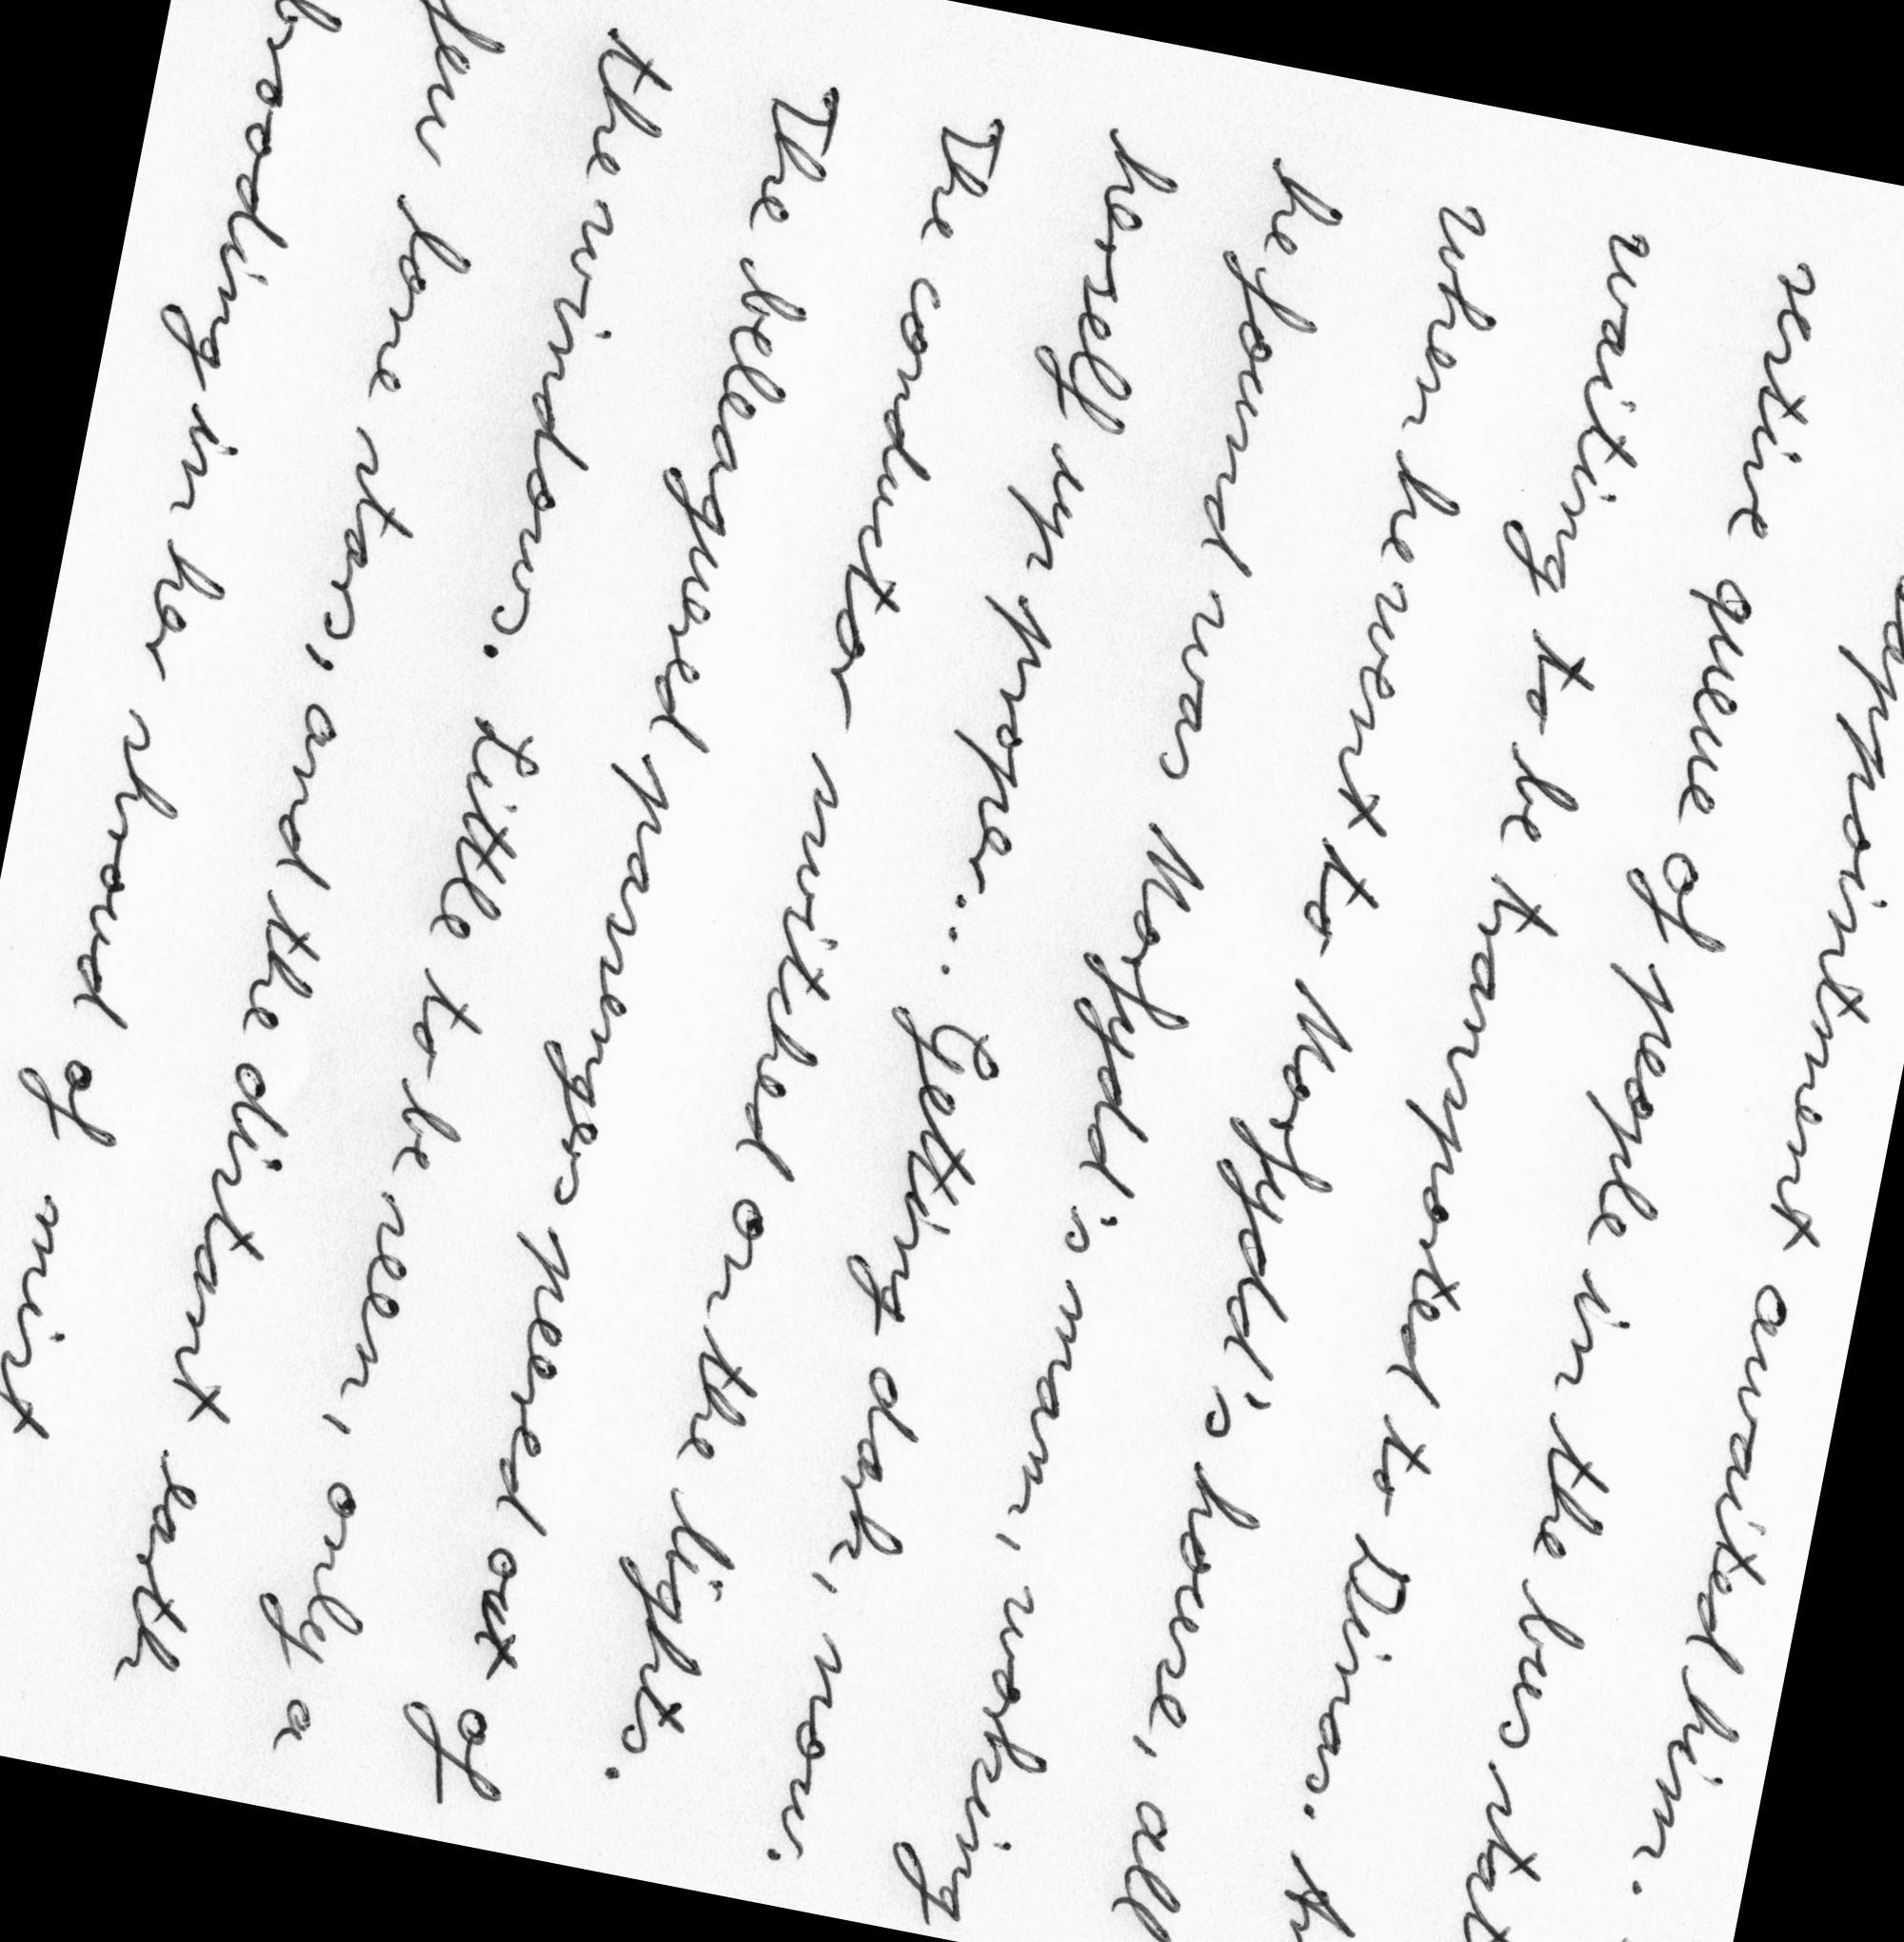 appointment awaited him.
restive queue of people in the bus stat
waiting to be transported to Dinas. th
when he went to Morfydd's house, all
he found was Morfydd's mam, working
herself up proper... Getting dark, now.
The conductor switched on the lights.
The beleaguered passengers peered out of
the windows. Little to be seen, only a
few lone stars, and the distant earth
brooding in her shroud of mist